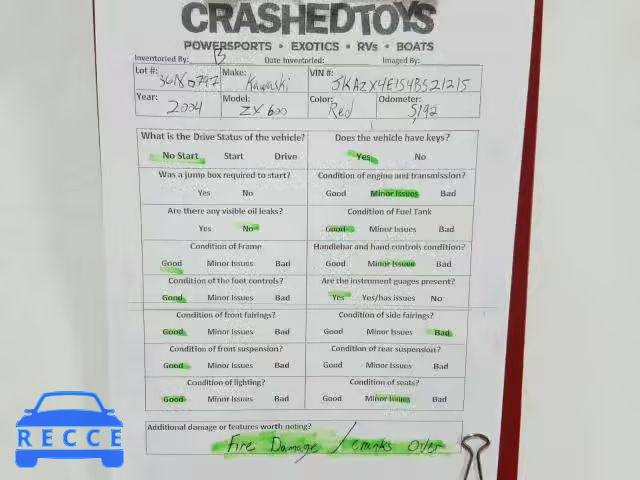 CRASHEDTOYS
POWERSPORTS • EXOTICS • RVs • BOATS
Inventoried By: B Date Inventoried: Imaged By:
Lot #: 36180747 Make: Kawaski VIN #: JKAZX4E154B521215
Year: 2004 Model: ZX600 Color: Red Odometer: 5192
What is the Drive Status of the vehicle? Does the vehicle have keys?
No Start Start Drive Yes No
Was a jump box required to start? Condition of engine and transmission?
Yes No Good Minor Issues Bad
Are there any visible oil leaks? Condition of Fuel Tank
Yes No Good Minor Issues Bad
Condition of Frame Handlebar and hand controls condition?
Good Minor Issues Bad Good Minor Issues Bad
Condition of the foot controls? Are the instrument guages present?
Good Minor Issues Bad Yes Yes/has issues No
Condition of front fairings? Condition of side fairings?
Good Minor Issues Bad Good Minor Issues Bad
Condition of front suspension? Condition of rear suspension?
Good Minor Issues Bad Good Minor Issues Bad
Condition of lighting? Condition of seats?
Good Minor Issues Bad Good Minor Issues Bad
Additional damage or features worth noting?
Fire Damage / cranks over
RECCE